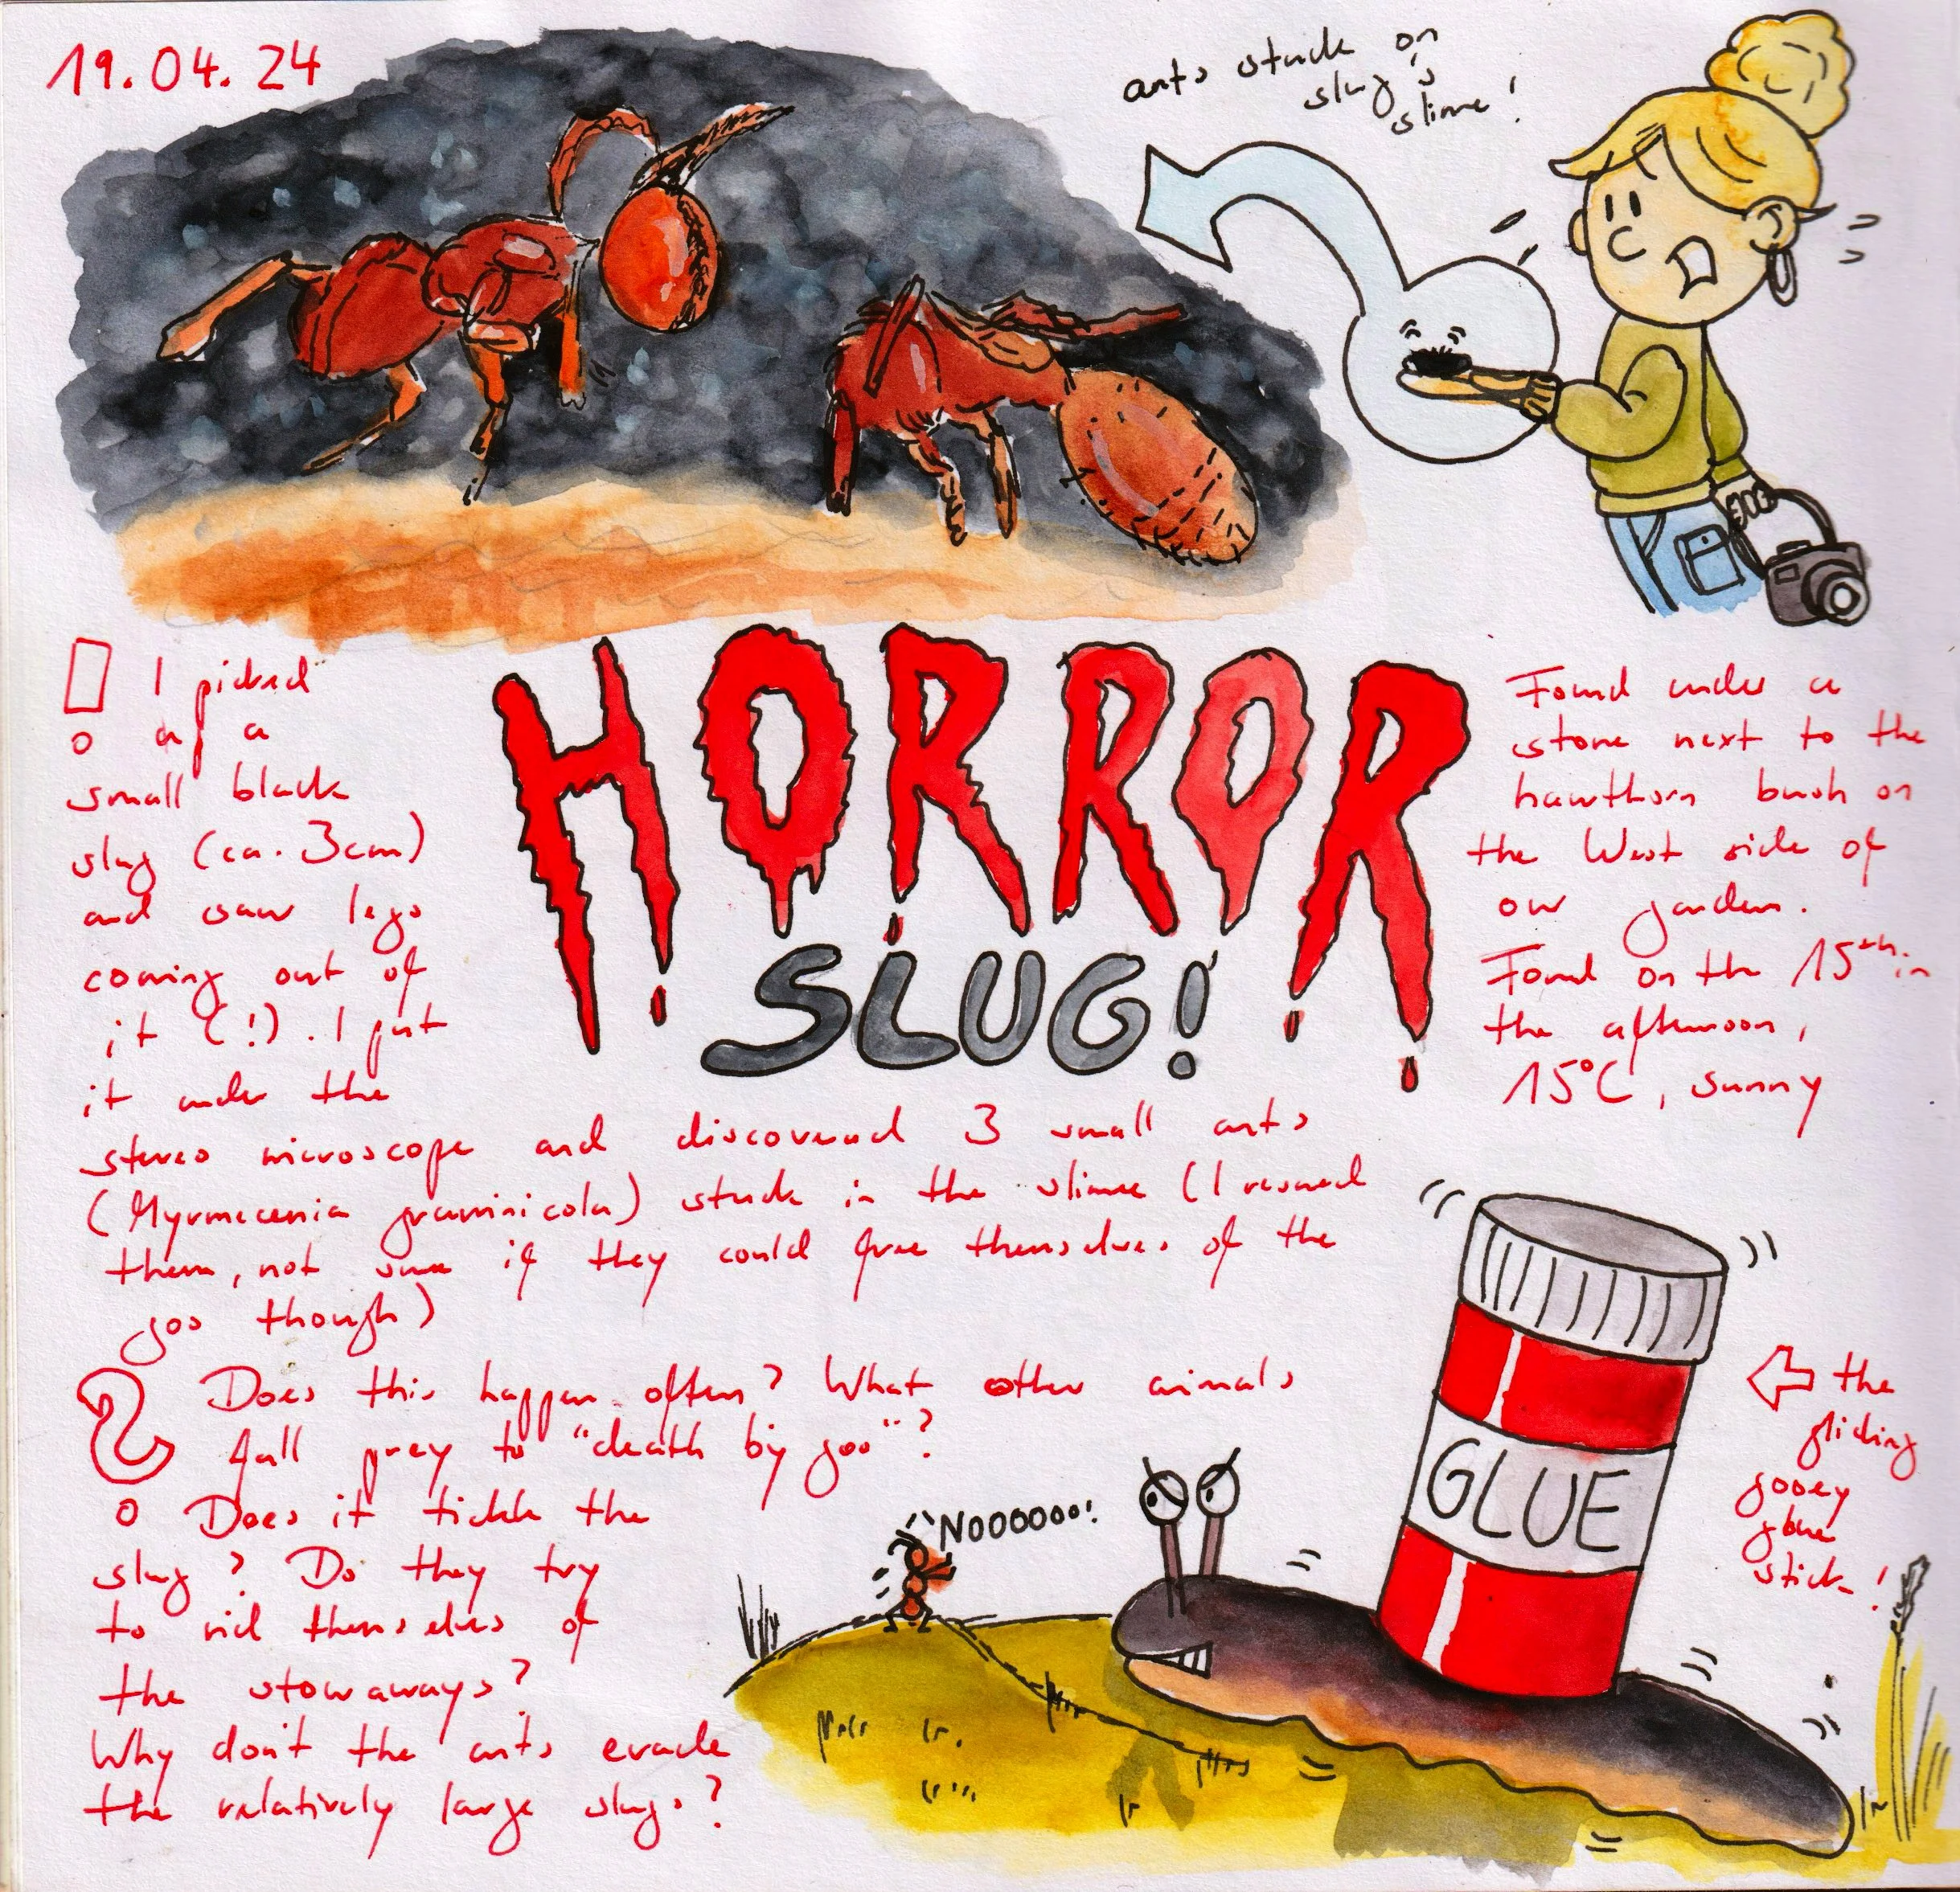 19.04.24
ants stuck on
slug's
slime!
I picked
up a
small black
slug (ca. 3cm)
and saw legs
coming out of
it (!). I put
it under the
stereo microscope and discovered 3 small ants
(Myrmecenia graminicola) stuck in the slime (I rescued
them, not sure if they could free themselves of the
goo though)
HORROR
SLUG!
Found under a
stone next to the
hawthorn bush on
the West side of
our garden.
Found on the 15th in
the afternoon,
15°C, sunny
Does this happen often? What other animals
fall prey to "death by goo"?
Does it tickle the
slug? Do they try
to rid themselves of
the stowaways?
Why don't the ants evade
the relatively large slugs?
NOOOOOO!
GLUE
the
gliding
gooey
glue
stick!